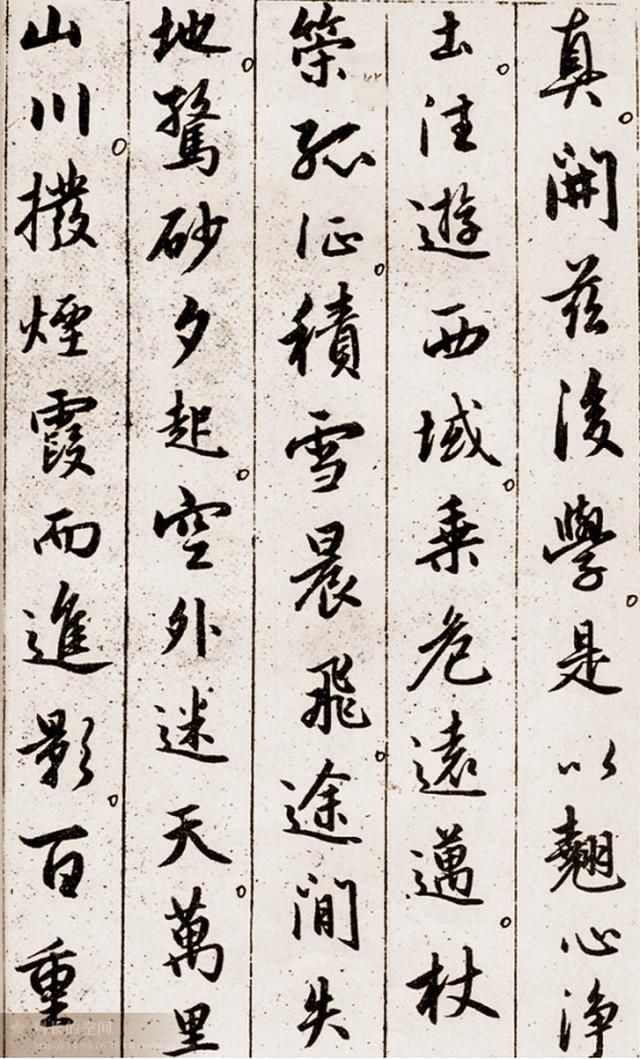 真。開茲後學。是以翹心淨
土。往遊西域。乘危遠邁。杖
策孤征。積雪晨飛。途間失
地。驚砂夕起。空外迷天。萬里
山川。撥煙霞而進影。百重
的空间